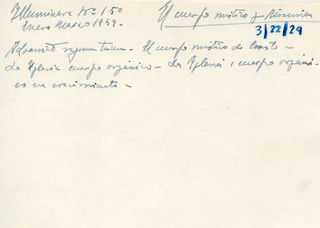 Illuminare Nº 150
Enero Marzo 1949.
El cuerpo místico y Misiones
3/22/29
El cuerpo místico de Cristo -
La Iglesia cuerpo orgánico - La Iglesia, cuerpo orgáni-
co en crecimiento -